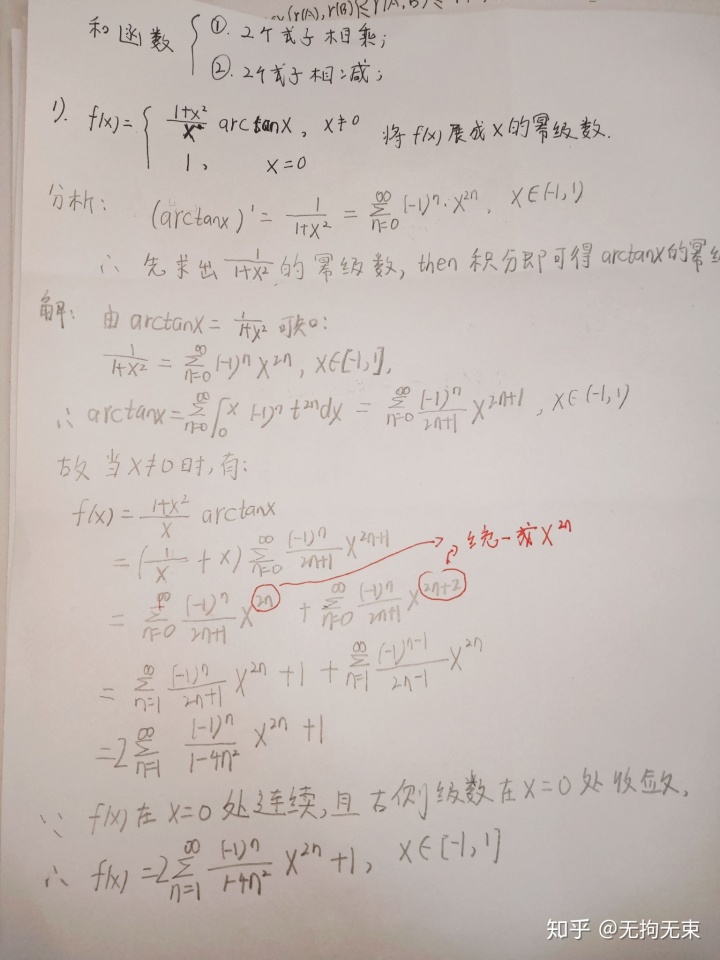 和函数 { ①. 2个式子相乘;
②. 2个式子相减;
1). f(x)= { \frac{1+x^2}{x} arctanx, x≠0 将f(x)展成x的幂级数.
1, x=0
分析: (arctanx)' = \frac{1}{1+x^2} = \sum_{n=0}^{∞} (-1)^n · x^{2n}, x∈(-1,1)
∴ 先求出 \frac{1}{1+x^2} 的幂级数, then 积分即可得 arctanx的幂级
解: 由 arctanx = \frac{1}{1+x^2} 可知:
\frac{1}{1+x^2} = \sum_{n=0}^{∞} (-1)^n x^{2n}, x∈[-1,1],
∴ arctanx = \sum_{n=0}^{∞} \int_0^x (-1)^n t^{2n} dx = \sum_{n=0}^{∞} \frac{(-1)^n}{2n+1} x^{2n+1}, x∈(-1,1)
故当x≠0时,有:
f(x) = \frac{1+x^2}{x} arctanx
= (\frac{1}{x} + x) \sum_{n=0}^{∞} \frac{(-1)^n}{2n+1} x^{2n+1} 统一成 x^{2n}
= \sum_{n=0}^{∞} \frac{(-1)^n}{2n+1} x^{2n} + \sum_{n=0}^{∞} \frac{(-1)^n}{2n+1} x^{2n+2}
= \sum_{n=1}^{∞} \frac{(-1)^n}{2n+1} x^{2n} + 1 + \sum_{n=1}^{∞} \frac{(-1)^{n-1}}{2n-1} x^{2n}
= 2\sum_{n=1}^{∞} \frac{(-1)^n}{1-4n^2} x^{2n} + 1
∵ f(x)在x=0处连续,且右侧级数在x=0处收敛,
∴ f(x) = 2\sum_{n=1}^{∞} \frac{(-1)^n}{1-4n^2} x^{2n} + 1, x∈[-1,1]
知乎 @无拘无束